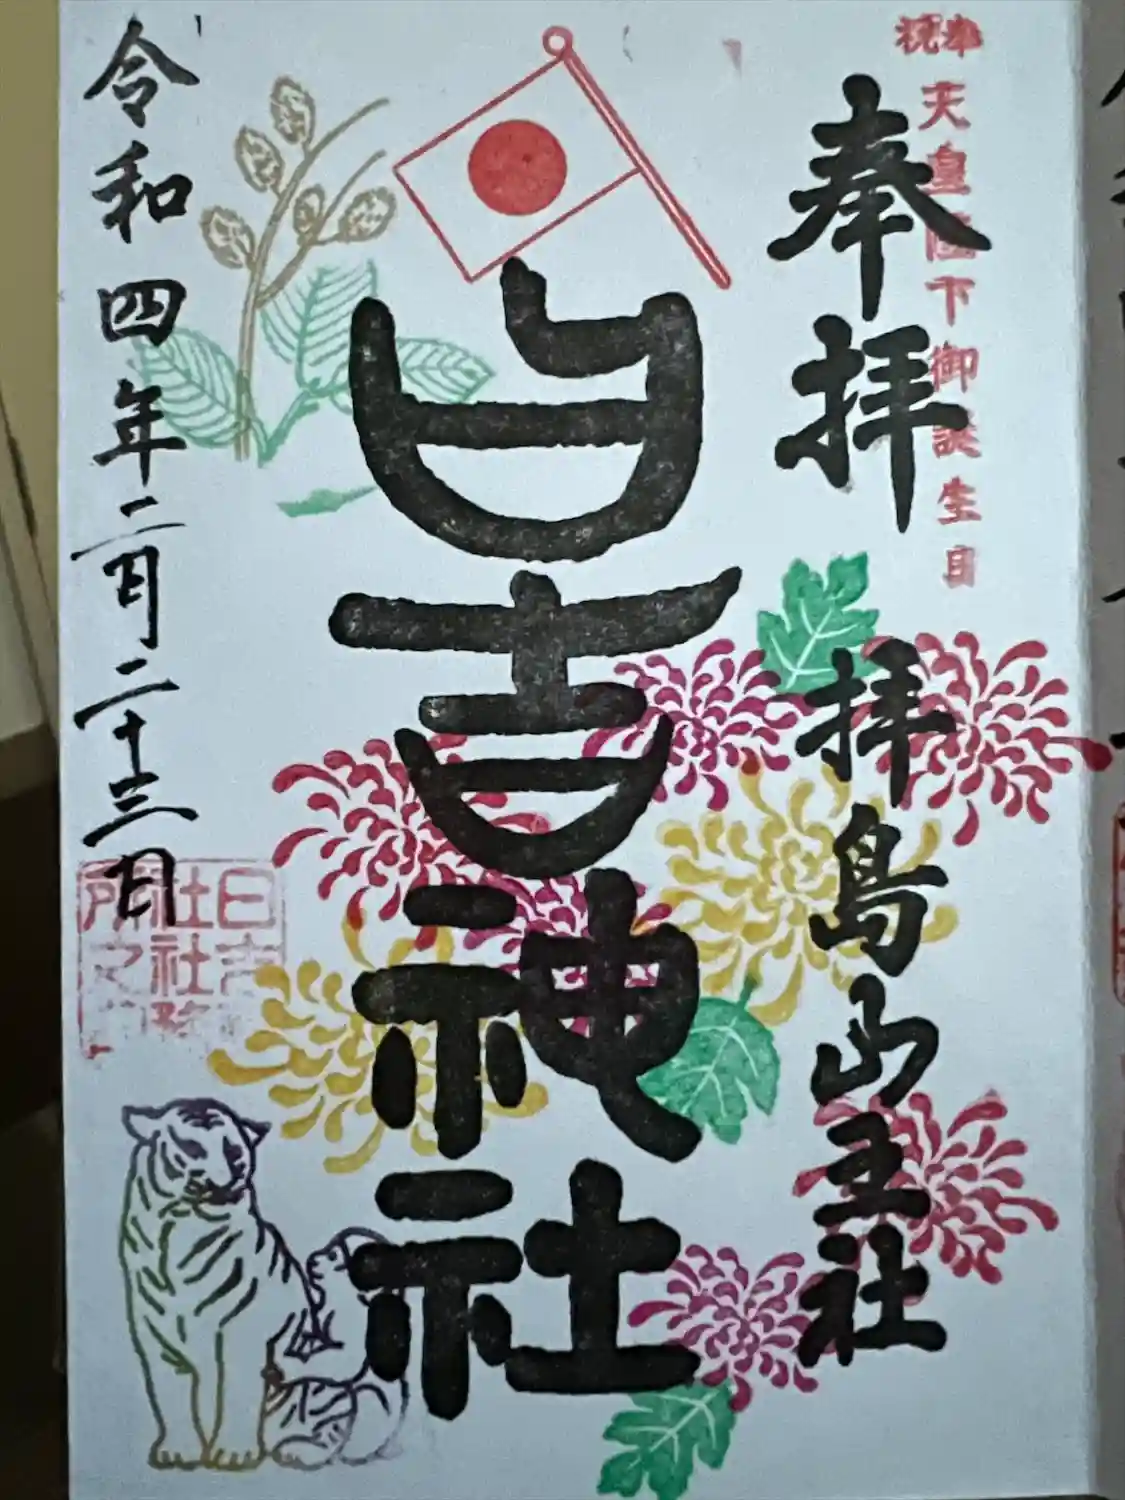 奉祝
天皇陛下御誕生日
奉拝
拝島山王社
日吉神社
令和四年二月二十三日
日吉
社社務
所之